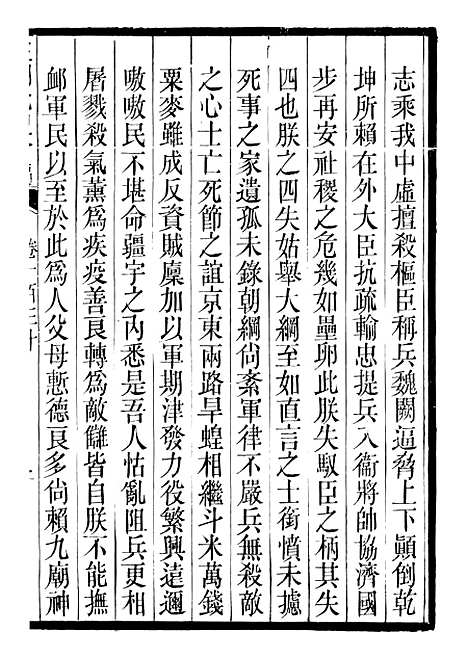 志乘我中虛擅殺樞臣稱兵魏闕逼脅上下顚倒乾
坤所賴在外大臣抗疏輸忠提兵入衞將帥協濟國
步再安社稷之危幾如壘卵此朕失馭臣之柄其失
四也朕之四失姑舉大綱至如直言之士銜憤未攄
死事之家遺孤未錄朝綱尙紊軍律不嚴兵無殺敵
之心士亡死節之誼京東兩路旱蝗相繼斗米萬錢
粟麥雖成反資賊廩加以軍期津發力役繁興遠邇
嗷嗷民不堪命疆宇之內悉是吾人怙亂阻兵更相
屠戮殺氣薰爲疾疫善良轉爲敵讎皆自朕不能撫
卹軍民以至於此爲人父母慙德良多尙賴九廟神
卷一百三十